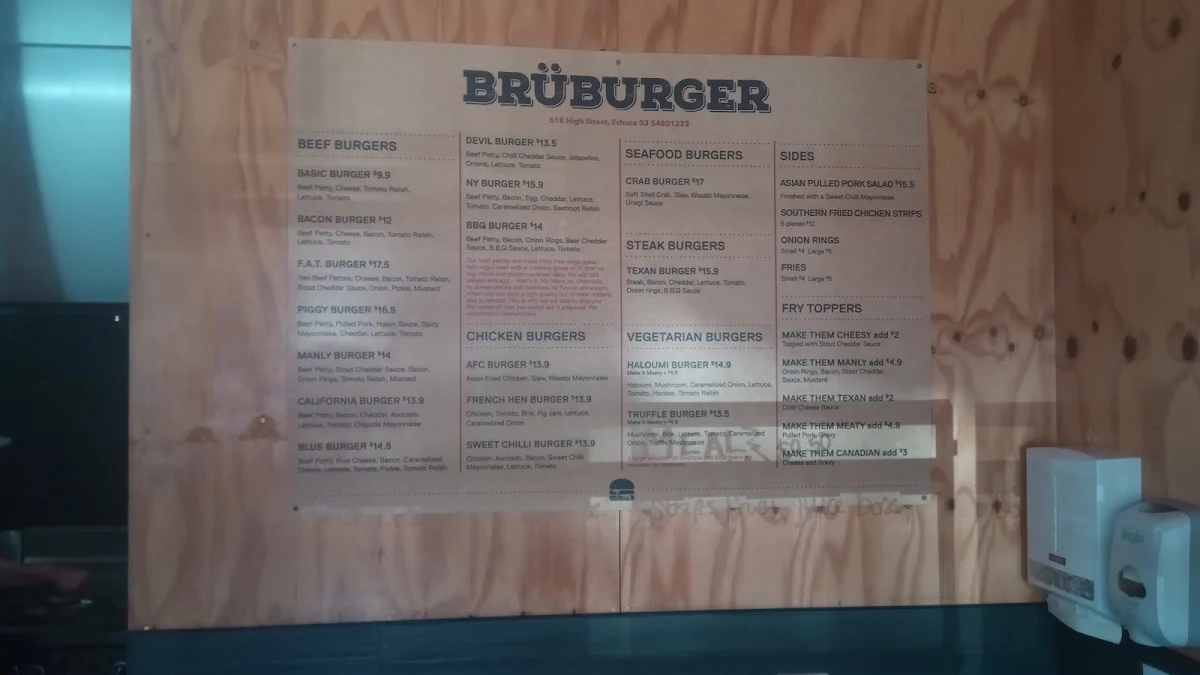 BRÜBURGER
618 High Street, Echuca 03 54801332
BEEF BURGERS
BASIC BURGER $9.9
Beef Patty, Cheese, Tomato Relish,
Lettuce, Tomato
BACON BURGER $12
Beef Patty, Cheese, Bacon, Tomato Relish,
Lettuce, Tomato
F.A.T. BURGER $17.5
Two Beef Patties, Cheese, Bacon, Tomato Relish,
Stout Cheddar Sauce, Onion, Pickle, Mustard
PIGGY BURGER $16.5
Beef Patty, Pulled Pork, Hoisin Sauce, Spicy
Mayonnaise, Cheddar, Lettuce, Tomato
MANLY BURGER $14
Beef Patty, Stout Cheddar Sauce, Bacon,
Onion Rings, Tomato Relish, Mustard
CALIFORNIA BURGER $13.9
Beef Patty, Bacon, Cheddar, Avocado,
Lettuce, Tomato, Chipotle Mayonnaise
BLUE BURGER $14.5
Beef Patty, Blue Cheese, Bacon, Caramelized
Onions, Lettuce, Tomato, Pickle, Tomato Relish
DEVIL BURGER $13.5
Beef Patty, Chilli Cheddar Sauce, Jalapeños,
Onions, Lettuce, Tomato
NY BURGER $15.9
Beef Patty, Bacon, Egg, Cheddar, Lettuce,
Tomato, Caramelized Onion, Beetroot Relish
BBQ BURGER $14
Beef Patty, Bacon, Onion Rings, Beer Cheddar
Sauce, B.B.Q Sauce, Lettuce, Tomato
CHICKEN BURGERS
AFC BURGER $13.9
Asian Fried Chicken, Slaw, Wasabi Mayonnaise
FRENCH HEN BURGER $13.9
Chicken, Tomato, Brie, Fig Jam, Lettuce,
Caramelized Onion
SWEET CHILLI BURGER $13.9
Chicken, Avocado, Bacon, Sweet Chilli
Mayonnaise, Lettuce, Tomato
SEAFOOD BURGERS
CRAB BURGER $17
Soft Shell Crab, Slaw, Wasabi Mayonnaise,
Unagi Sauce
STEAK BURGERS
TEXAN BURGER $15.9
Steak, Bacon, Cheddar, Lettuce, Tomato,
Onion rings, B.B.Q Sauce
VEGETARIAN BURGERS
HALOUMI BURGER $14.9
Make it Meaty +
Haloumi, Mushroom, Caramelized Onion, Lettuce,
Tomato, Harissa, Tomato Relish
TRUFFLE BURGER $13.5
Make it Meaty +
Mushroom, Brie, Lettuce, Tomato, Caramelized
Onion, Truffle Mayonnaise
SIDES
ASIAN PULLED PORK SALAD $15.5
Finished with a Sweet Chilli Mayonnaise
SOUTHERN FRIED CHICKEN STRIPS
5 pieces $12
ONION RINGS
Small $4 Large $6
FRIES
Small $4 Large $6
FRY TOPPERS
MAKE THEM CHEESY add $2
Topped with Stout Cheddar Sauce
MAKE THEM MANLY add $4.9
Onion Rings, Bacon, Stout Cheddar
Sauce, Mustard
MAKE THEM TEXAN add $2
Chilli Cheese Sauce
MAKE THEM MEATY add $4.9
Pulled Pork, Gravy
MAKE THEM CANADIAN add $3
Cheese and Gravy